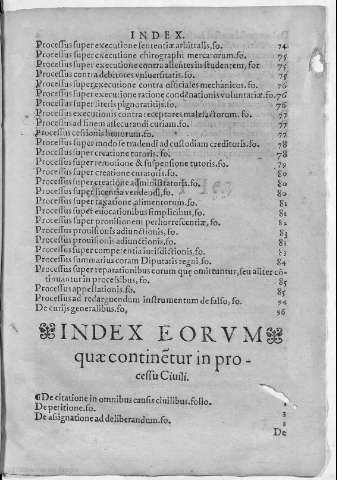 INDEX.
Processus super executione sententiæ arbitralis. fo. 74
Processus super executione chirographi mercatorum. fo. 75
Processus super executione contra assentes in studentem, fo. 75
Processus contra debitores vniuersitatis. fo. 75
Processus super executione contra officiales mechanicos. fo. 76
Processus super executione ratione condēnationis voluntariæ. fo. 76
Processus super literis pignoratitijs. fo. 76
Processus executionis contra receptatores malefactorum. fo. 77
Processus ad finem assecurandi curiam. fo. 77
Processus cessionis bonorum. fo. 77
Processus super modo se tradendi ad custodiam creditoris. fo. 78
Processus super creatione tutoris. fo. 78
Processus super remotione & suspensione tutoris. fo. 79
Processus super creatione curatoris. fo. 80
Processus super creatione administratoris. fo. 80
Processus super licentia vendendi. fo. 80
Processus super taxatione alimentorum. fo. 81
Processus super euocationibus simplicibus. fo. 81
Processus super prouisionem perhorrescentiæ, fo. 82
Processus prouisionis adiunctionis. fo. 83
Processus prouisionis adiunctionis. fo. 82
Processus super competentia iurisdictionis. fo. 83
Processus summarius coram Diputatis regni. fo. 84
Processus super reparationibus eorum quę omittuntur, seu aliter cō-
tinuantur in processibus, fo. 85
Processus appellationis. fo. 85
Processus ad redarguendum instrumentum de falso, fo. 94
De curijs generalibus. fo. 96
INDEX EORVM
quæ continētur in pro-
cessu Ciuili.
¶De citatione in omnibus causis ciuilibus. folio.
De petitione. fo. 2
De assignatione ad deliberandum. fo. 2
De